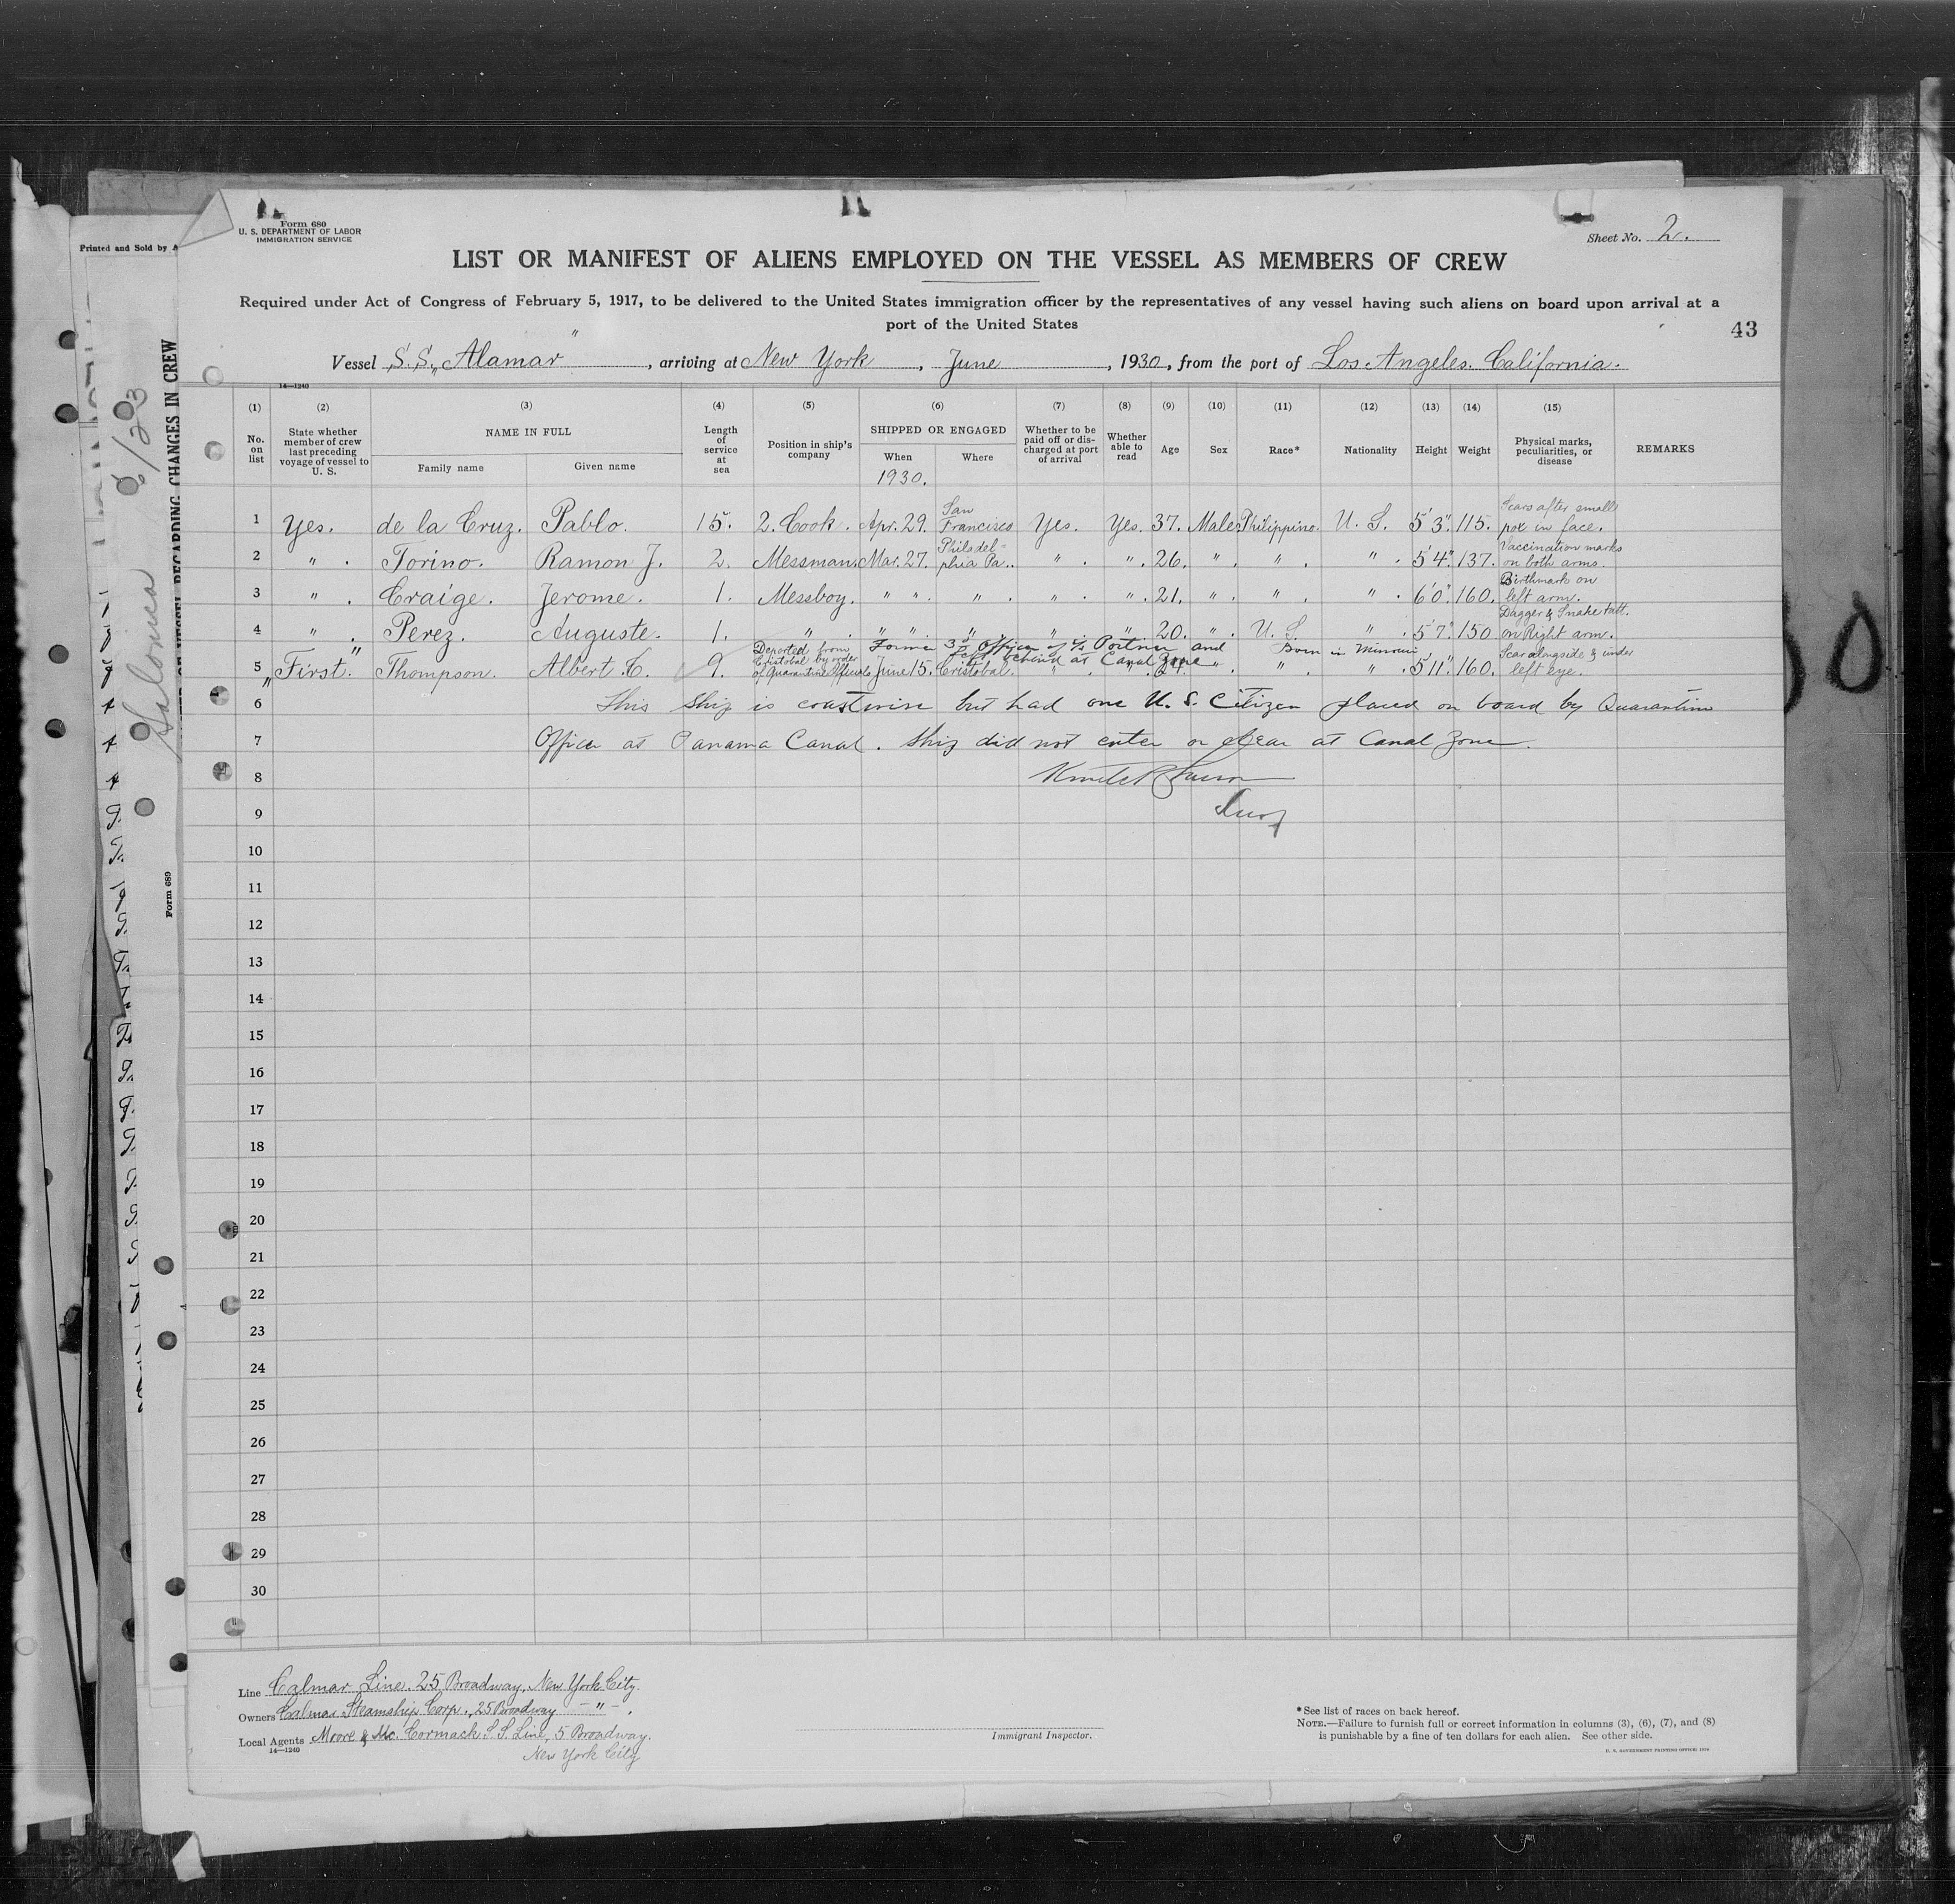 Form 680
U. S. DEPARTMENT OF LABOR
IMMIGRATION SERVICE
Printed and Sold by
Sheet No. 2.
LIST OR MANIFEST OF ALIENS EMPLOYED ON THE VESSEL AS MEMBERS OF CREW
Required under Act of Congress of February 5, 1917, to be delivered to the United States immigration officer by the representatives of any vessel having such aliens on board upon arrival at a
port of the United States
43
Vessel S.S. „Alamar", arriving at New York, June, 1930, from the port of Los Angeles. California.
14—1240
(1) (2) (3) (4) (5) (6) (7) (8) (9) (10) (11) (12) (13) (14) (15)
No. on list
State whether member of crew last preceding voyage of vessel to U. S.
NAME IN FULL
Family name
Given name
Length of service at sea
Position in ship's company
SHIPPED OR ENGAGED
When
Where
1930.
Whether to be paid off or discharged at port of arrival
Whether able to read
Age
Sex
Race*
Nationality
Height
Weight
Physical marks, peculiarities, or disease
REMARKS
1 Yes. de la Cruz. Pablo. 15. 2. Cook. Apr. 29. San Francisco Yes. Yes. 37. Male Philippino. U. S. 5'3". 115. Scars after small pox in face.
2 " . Torino. Ramon J. 2. Messman. Mar. 27. Philadelphia Pa.. " . " . 26. " . " . " . 5'4" 137. Vaccination marks on both arms.
3 " . Craige. Jerome. 1. Messboy. " " . " . " . " . 21. " . " . " . 6'0". 160. Birthmark on left arm.
4 " . Perez. Auguste. 1. " . " " . " . " . " 20. " . U. S. " . 5'7". 150 Dagger & Snake tatt. on Right arm.
Deported from Cristobal by order of Quarantine Officials
Former 3rd Officer of S/S and
left behind at Canal Zone
Born in Missouri
5 „First." Thompson. Albert C. 9. June 15. Cristobal. " . " . 24. " . " . " . 5'11" 160. Scar alongside & under left eye.
6 This ship is coastwise but had one U. S. Citizen placed on board by Quarantine
7 Officer at Panama Canal. Ship did not enter or clear at Canal Zone.
8
9
10
11
12
13
14
15
16
17
18
19
20
21
22
23
24
25
26
27
28
29
30
Line Calmar Line. 25 Broadway. New York City.
Owners Calmar Steamship Corp., 25 Broadway — " — .
Local Agents Moore & Mc. Cormack S. S. Line, 5 Broadway.
14—1240
New York City
Immigrant Inspector.
*See list of races on back hereof.
NOTE.—Failure to furnish full or correct information in columns (3), (6), (7), and (8)
is punishable by a fine of ten dollars for each alien. See other side.
CHANGES IN CREW
Form 689
Salonica
6/23